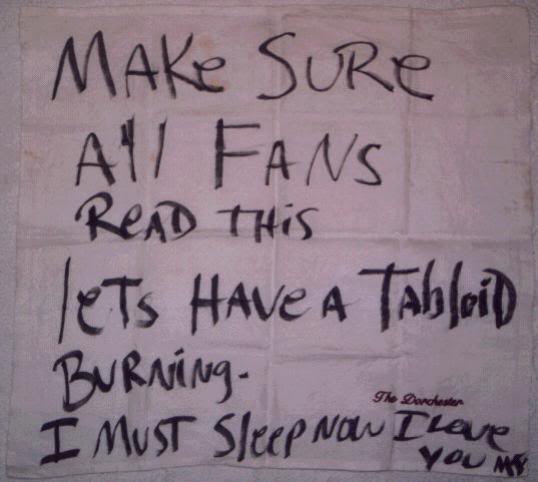 MAKe SURe
All FANS
ReAD THiS
leTs HAVe A TabloiD
BURNiNg-
The Dorchester
I MUST Sleep NOW I Love
YOU MJ